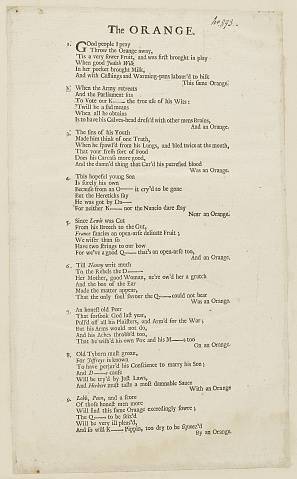 The ORANGE.
1. GOod people I pray
Throw the Orange away,
'Tis a very sower Fruit, and was first brought in play
When good Judith Wilk
In her pocket brought Milk,
And with Cushings and Warming-pans labour'd to bilk
This same Orange.
2. When the Army retreats
And the Parliament sits
To Vote our K—— the true use of his Wits:
'Twill be a sad means
When all he obtains
Is to have his Calves-head dress'd with other mens Brains,
And an Orange.
3. The sins of his Youth
Made him think of one Truth,
When he spawl'd from his Lungs, and bled twice at the mouth,
That your fresh sort of food
Does his Carcass more good,
And the damn'd thing that Cur'd his putrefied blood
Was an Orange.
4. This hopeful young Son
Is surely his own
Because from an O—— it cry'd to be gone
But the Hereticks say
He was got by Da——
For neither K—— nor the Nuncio dare stay
Near an Orange.
5. Since Lewis was Cut
From his Breech to the Gut,
France fancies an open-arse delicate Fruit;
We wiser than so
Have two strings to our bow
For we've a good Q—— that's an open-arse too,
And an Orange.
6. Till Nanny writ much
To the Rebels the D——
Her Mother, good Woman, ne're ow'd her a grutch
And the box of the Ear
Made the matter appear,
That the only foul savour the Q—— could not bear
Was an Orange.
7. An honest old Peer
That forsook God last year,
Pull'd off all his Plaisters, and Arm'd for the War;
But his Arms would not do,
And his Aches throbb'd too,
That he wish'd his own Pox and his M—— too
On an Orange.
8. Old Tyburn must groan,
For Jeffreys is known
To have perjur'd his Conscience to marry his Son;
And D—— cause
Will be try'd by just Laws,
And Herbert must taste a most damnable Sauce
With an Orange
9. Lobb, Penn, and a score
Of those honest men more
Will find this same Orange exceedingly sowre;
The Q—— to be seiz'd
Will be very ill pleas'd,
And so will K—— Pippin, too dry to be squeez'd
By an Orange.